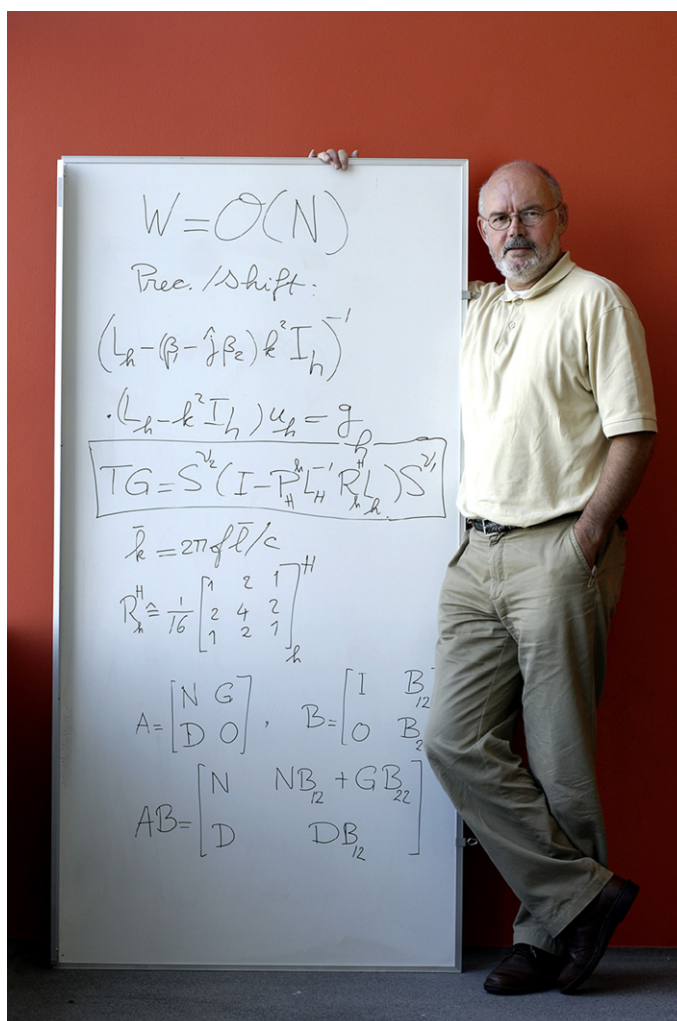 W = O(N)
Prec./shift:
(L_h - (β_1 - ĵβ_2) k² I_h)⁻¹
· (L_h - k² I_h) u_h = g_h
TG = S^ν₂ (I - P_H^h L_H⁻¹ R_h^H L_h) S^ν₁
k̄ = 2πf l̄/c
R_h^H ≙ 1/16 [1 2 1; 2 4 2; 1 2 1]_h^H
A = [N G; D O], B = [I B_12; O B_2]
AB = [N NB_12 + GB_22; D DB_12]